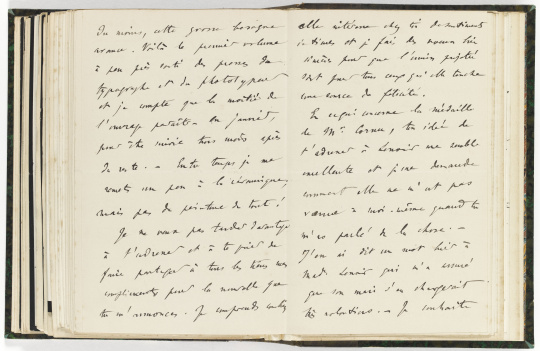 Du moins, cette grosse besogne
avance. Voilà le premier volume
à peu près sorti des presses du
typographe et du phototypeur
et je compte que la moitié de
l'ouvrage paraîtra en janvier,
pour être suivie trois mois après
du reste. — Entre temps je me
remets un peu à la céramique,
mais pas de peinture du tout!
Je ne veux pas tarder davantage
à t'adresser et à te prier de
faire partager à tous les tiens mes
compliments pour la nouvelle que
tu m'annonces. Je comprends
elle intéresse chez toi de sentiments
intimes et je fais des vœux bien
sincères pour que l'union projetée
soit pour tous ceux qu'elle touche
une source de félicité.
En ce qui concerne la médaille
de Mr. Cornu, ton idée de
t'adresser à Lenoir me semble
excellente et je me demande
comment elle ne m'est pas
venue à moi-même quand tu
m'as parlé de la chose. —
J'en ai dit un mot hier à
Mad. Lenoir qui m'a assuré
que son mari s'en chargerait
très volontiers. — Je souhaite